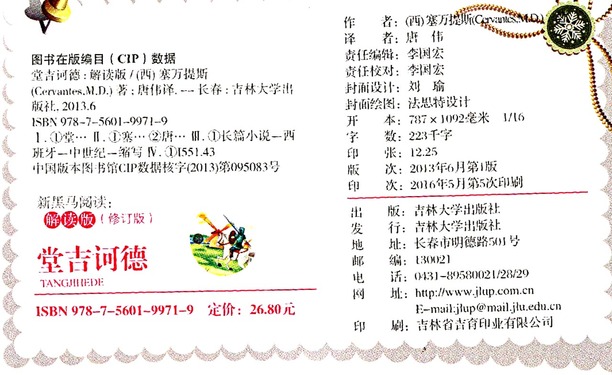 图书在版编目(CIP)数据
堂吉诃德:解读版/(西)塞万提斯
(Cervantes,M.D.)著;唐伟译.—长春:吉林大学出
版社,2013.6
ISBN 978-7-5601-9971-9
Ⅰ.①堂… Ⅱ.①塞…②唐… Ⅲ.①长篇小说—西
班牙—中世纪—缩写 Ⅳ.①I551.43
中国版本图书馆CIP数据核字(2013)第095083号
新黑马阅读:
解读版(修订版)
堂吉诃德
TANGJIHEDE
ISBN 978-7-5601-9971-9 定价:26.80元
作 者:(西)塞万提斯(Cervantes,M.D.)
译 者:唐 伟
责任编辑:李国宏
责任校对:李国宏
封面设计:刘 瑜
封面绘图:法思特设计
开 本:787×1092毫米 1/16
字 数:223千字
印 张:12.25
版 次:2013年6月第1版
印 次:2016年5月第5次印刷
出 版:吉林大学出版社
发 行:吉林大学出版社
地 址:长春市明德路501号
邮 编:130021
电 话:0431-89580021/28/29
网 址:http://www.jlup.com.cn
E-mail:jlup@mail.jlu.edu.cn
印 刷:吉林省吉育印业有限公司